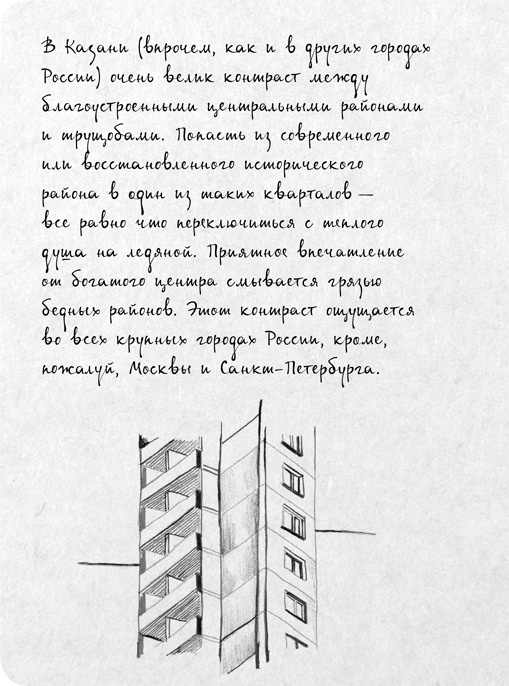 В Казани (впрочем, как и в других городах
России) очень велик контраст между
благоустроенными центральными районами
и трущобами. Попасть из современного
или восстановленного исторического
района в один из таких кварталов —
все равно что переключиться с теплого
душа на ледяной. Приятное впечатление
от богатого центра смывается грязью
бедных районов. Этот контраст ощущается
во всех крупных городах России, кроме,
пожалуй, Москвы и Санкт-Петербурга.